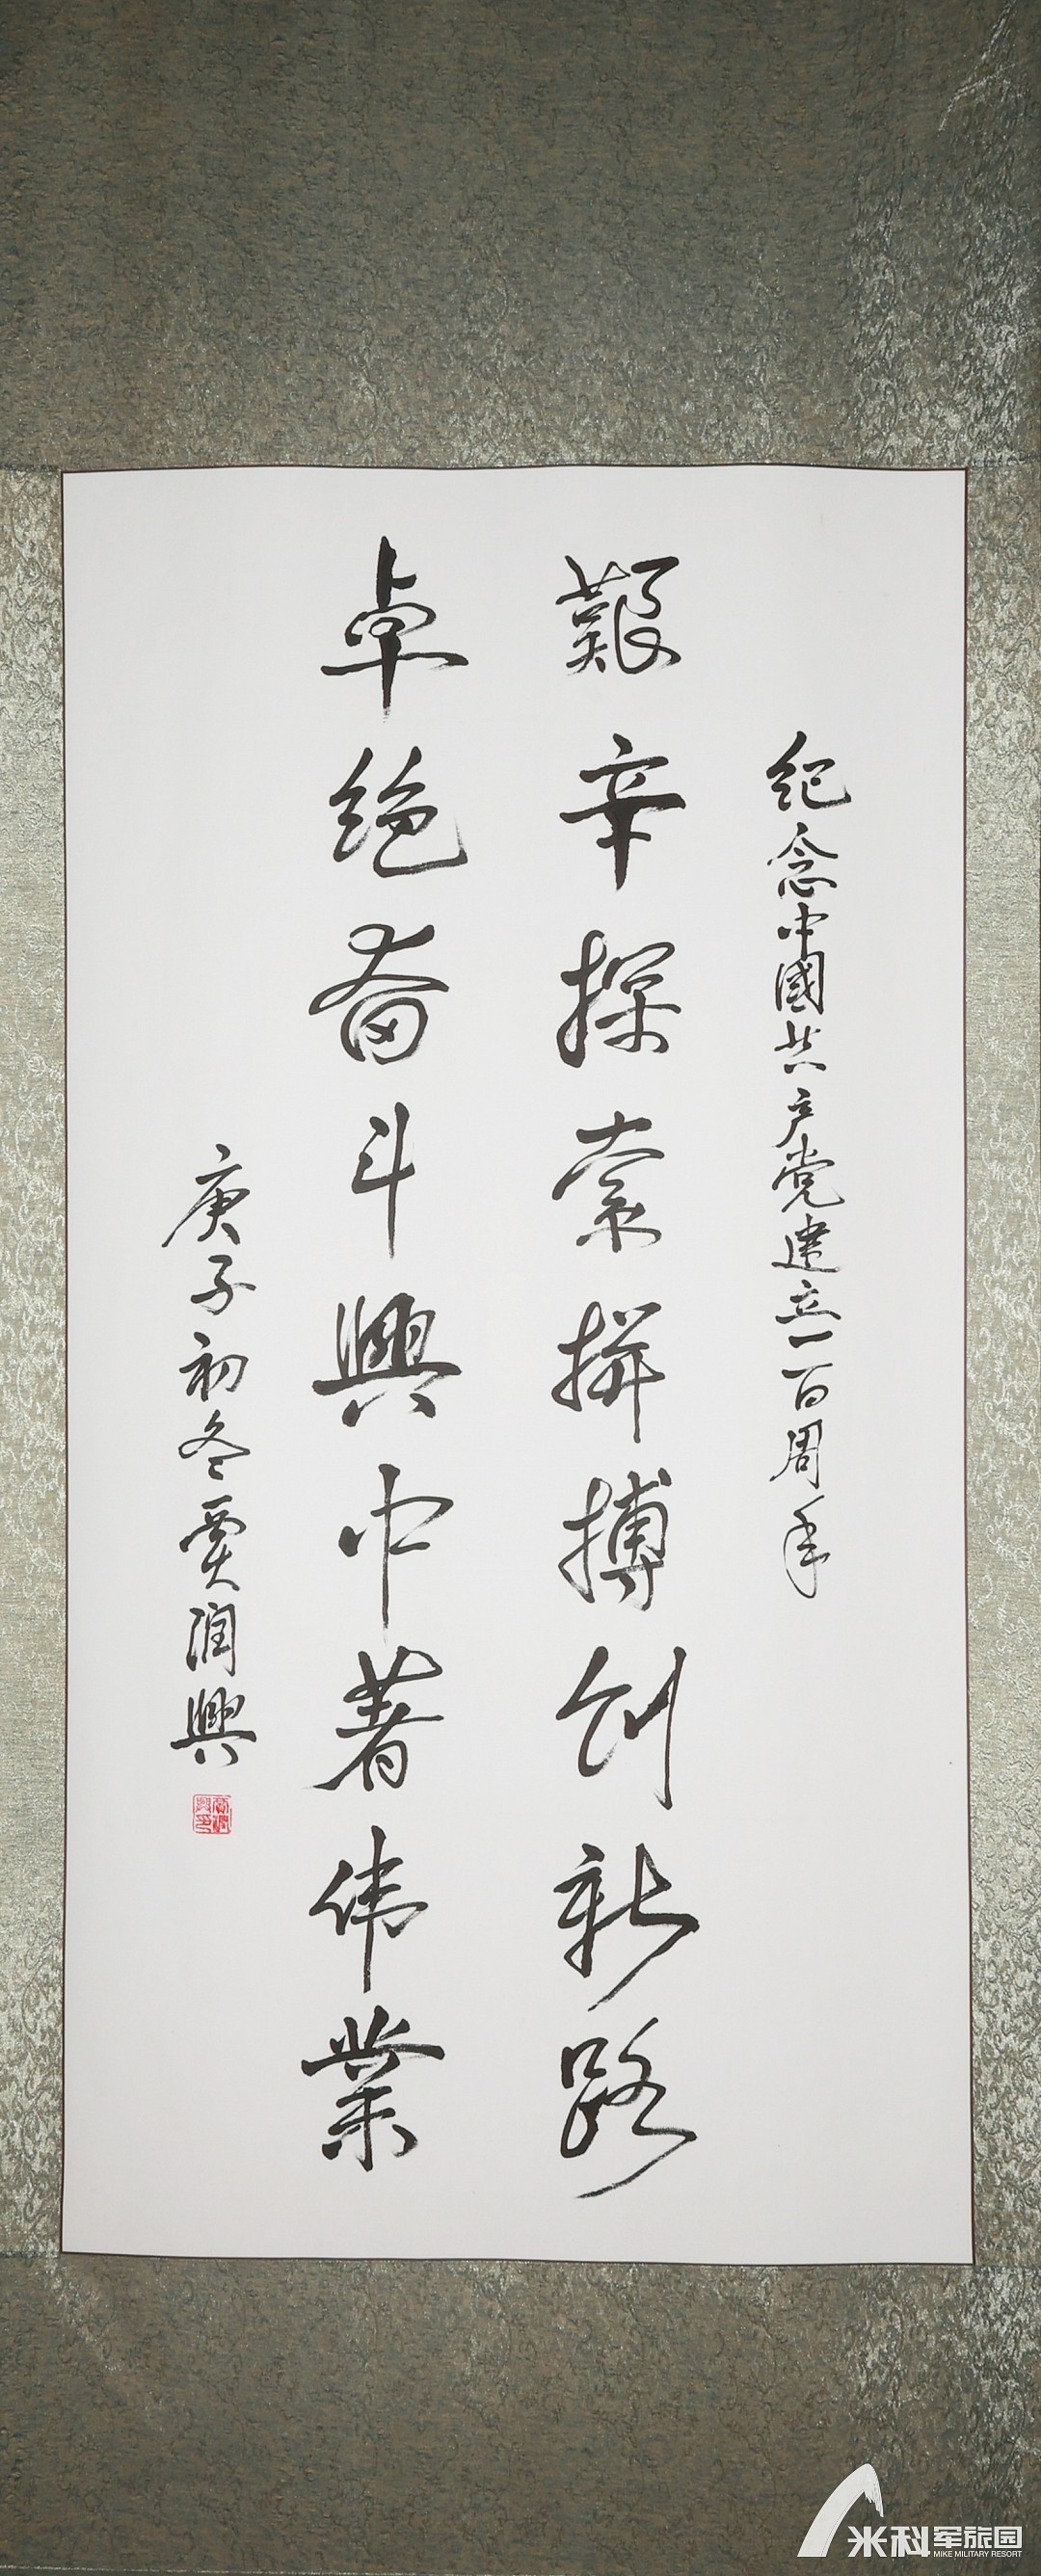 纪念中國共产党建立一百周年
艱辛探索拼搏创新路
卓绝奋斗興中著伟業
庚子初冬贾润興
米科军旅园
MIKE MILITARY RESORT